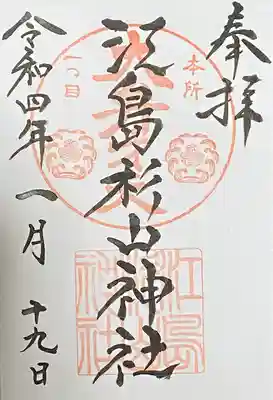 奉拝
本所
江島杉山神社
一つ目
江島
神社
令和四年一月十九日